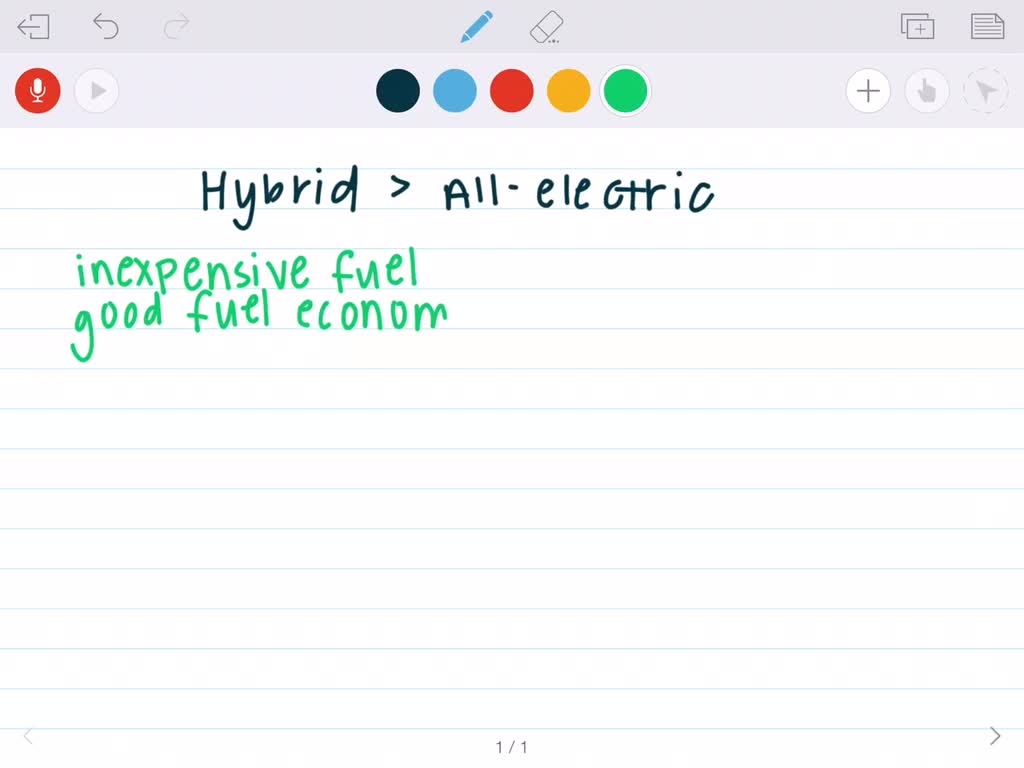 Hybrid > All-electric
inexpensive fuel
good fuel econom
1 / 1